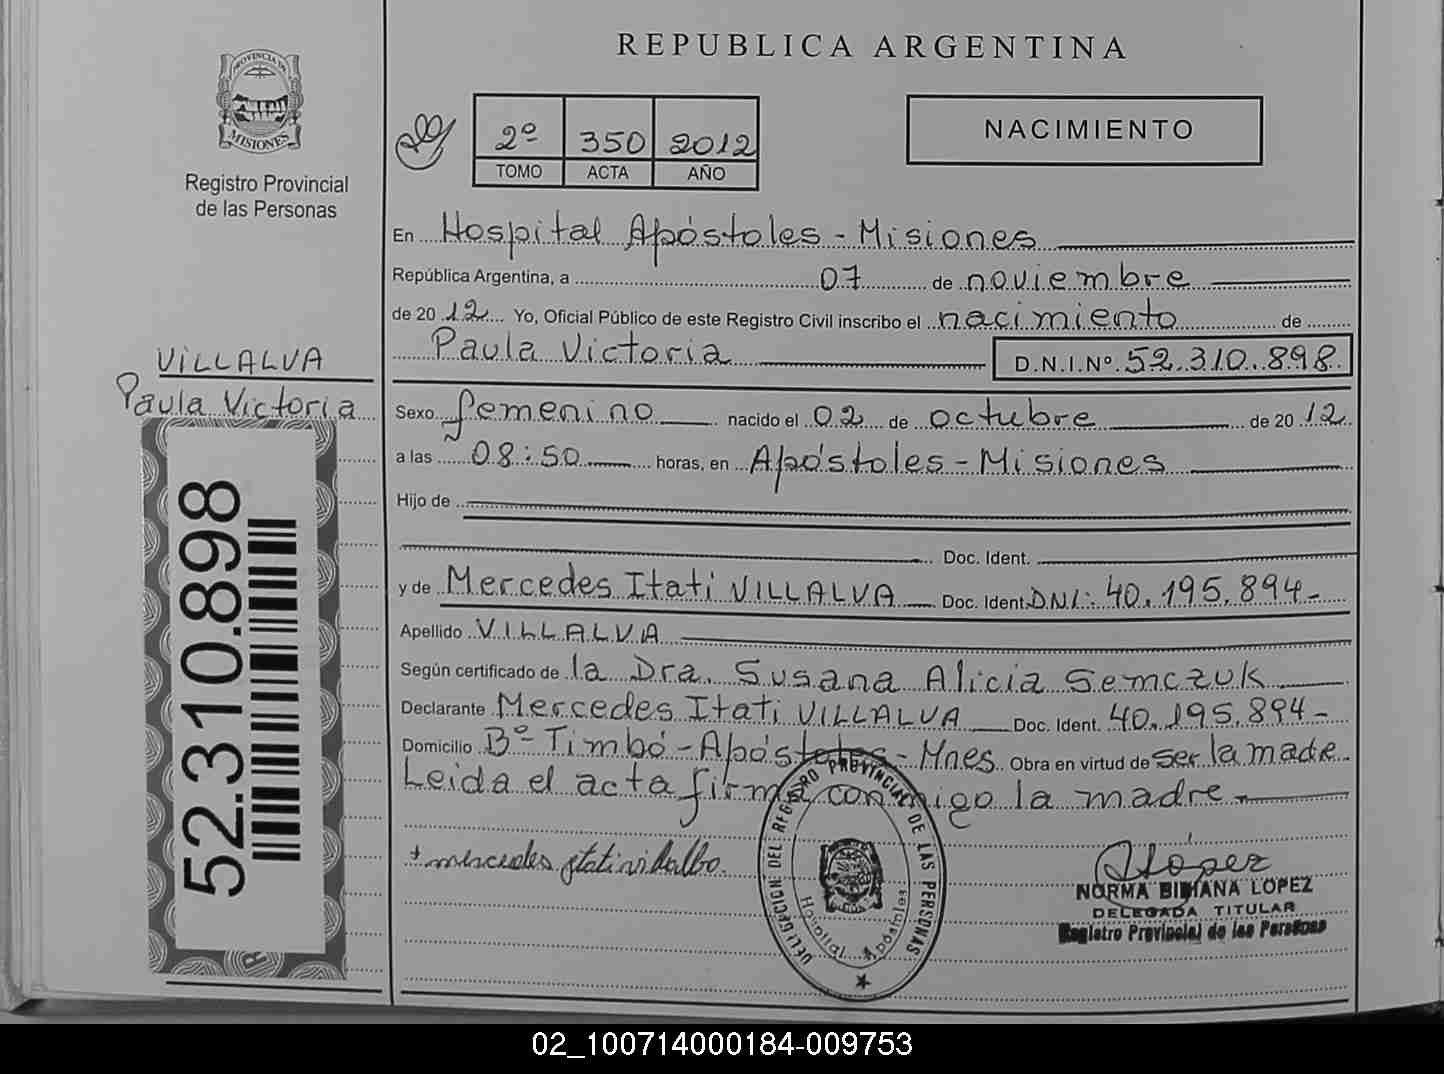 REPUBLICA ARGENTINA
PROVINCIA DE
MISIONES
Registro Provincial
de las Personas
2º 350 2012
TOMO ACTA AÑO
NACIMIENTO
En Hospital Apóstoles - Misiones
República Argentina, a 07 de noviembre
de 2012 Yo, Oficial Público de este Registro Civil inscribo el nacimiento de
Paula Victoria D.N.I.Nº 52.310.898
VILLALVA
Paula Victoria
52.310.898
Sexo femenino nacido el 02 de octubre de 2012
a las 08:50 horas, en Apóstoles - Misiones
Hijo de
Doc. Ident.
y de Mercedes Itati VILLALVA Doc. Ident. DNI: 40.195.894-
Apellido VILLALVA
Según certificado de la Dra. Susana Alicia Semczuk
Declarante Mercedes Itati VILLALVA Doc. Ident. 40.195.894-
Domicilio Bº Timbó - Apóstoles - Mnes Obra en virtud de ser la madre
Leida el acta firma conmigo la madre
+ mercedes itati villalba.
DELEGACION DEL REGISTRO PROVINCIAL DE LAS PERSONAS
Hospital Apóstoles
NLópez
NORMA BIBIANA LOPEZ
DELEGADA TITULAR
Registro Provincial de las Personas
02_100714000184-009753